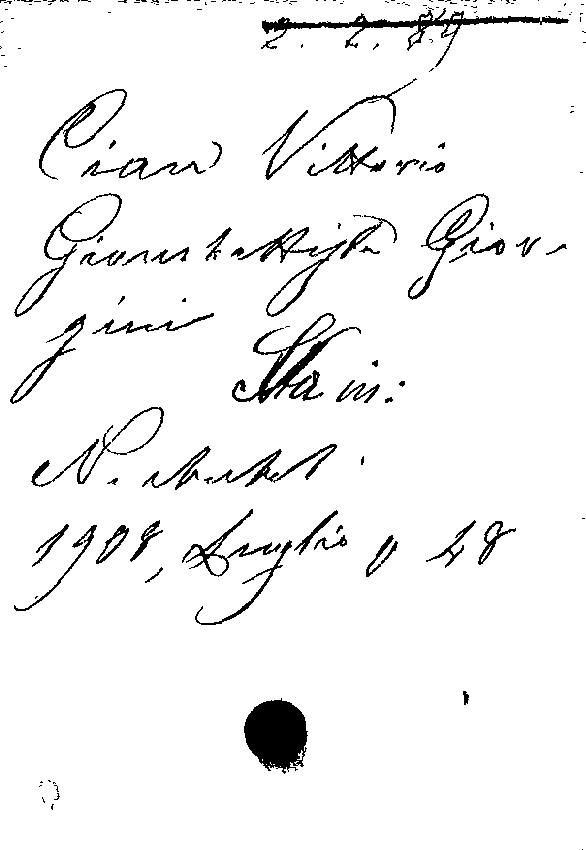 2. 2. 89
Cian Vittorio
Giambattista Gior-
gini
Sta in:
N. Antol.
1908, Luglio, p 28